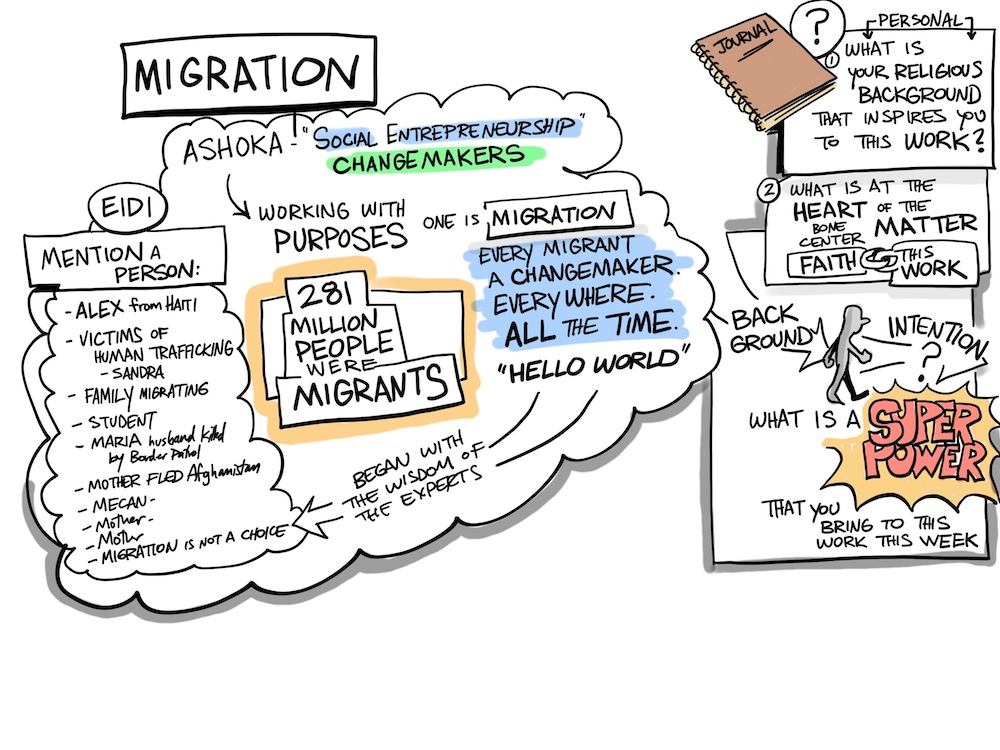 MIGRATION
ASHOKA - "SOCIAL ENTREPRENEURSHIP"
CHANGEMAKERS
WORKING WITH
PURPOSES
ONE IS MIGRATION
EVERY MIGRANT
A CHANGEMAKER.
EVERYWHERE.
ALL THE TIME.
"HELLO WORLD"
281
MILLION
PEOPLE
WERE
MIGRANTS
BEGAN WITH
THE WISDOM OF
THE EXPERTS
EIDI
MENTION A
PERSON:
- ALEX from HAITI
- VICTIMS OF
HUMAN TRAFFICKING
- SANDRA
- FAMILY MIGRATING
- STUDENT
- MARIA husband killed
by Border Patrol
- MOTHER FLED Afghanistan
- MECAN -
- Mother -
- Mothr
- MIGRATION IS NOT A CHOICE
JOURNAL
?
PERSONAL
1 WHAT IS
YOUR RELIGIOUS
BACKGROUND
THAT INSPIRES YOU
TO THIS WORK?
2 WHAT IS AT THE
HEART OF THE
BONE MATTER
CENTER
FAITH THIS
WORK
BACK
GROUND
INTENTION
?
WHAT IS A SUPER
POWER
THAT YOU
BRING TO THIS
WORK THIS WEEK